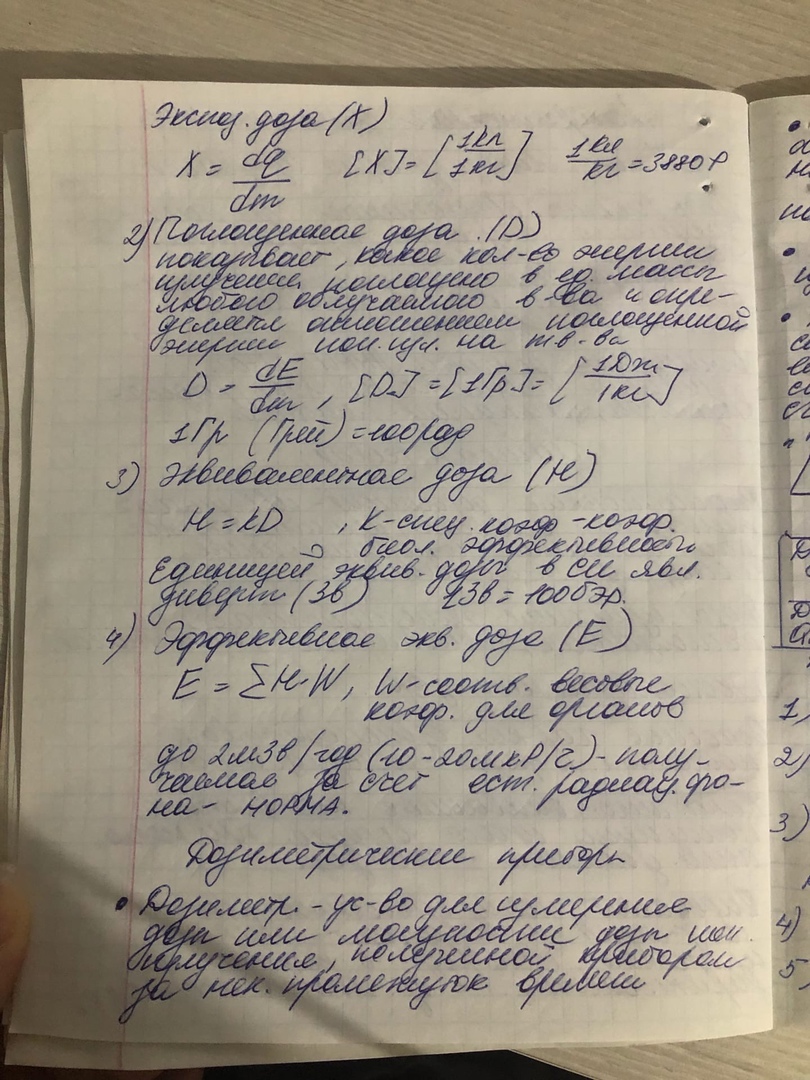 Экспоз. доза (X)
X = dq/dm [X] = [1Кл/1кг] 1Кл/кг = 3880Р
2) Поглощенная доза (D)
показывает, какое кол-во энергии
излучения поглощено в ед. массы
любого облучаемого в-ва и опре-
деляется отношением поглощенной
энергии ион. изл. на m в-ва
D = dE/dm, [D] = [1Гр] = [1Дж/1кг]
1Гр (Грей) = 100рад
3) Эквивалентная доза (H)
H = kD , k-спец. коэф -коэф.
биол. эффективности
Единицей эквив. дозы в СИ явл.
зиверт (Зв) 1Зв = 100бэр.
4) Эффективная экв. доза (E)
E = ΣH·W, W-соотв. весовые
коэф. для органов
до 2мЗв/год (10-20мкР/ч) - полу-
чаемая за счет ест. радиац. фо-
на - НОРМА.
Дозиметрические приборы
• Дозиметр. - ус-во для измерения
дозы или мощности дозы ион.
излучения, полученной прибором
за нек. промежуток времени
1)
2)
3)
4)
5)